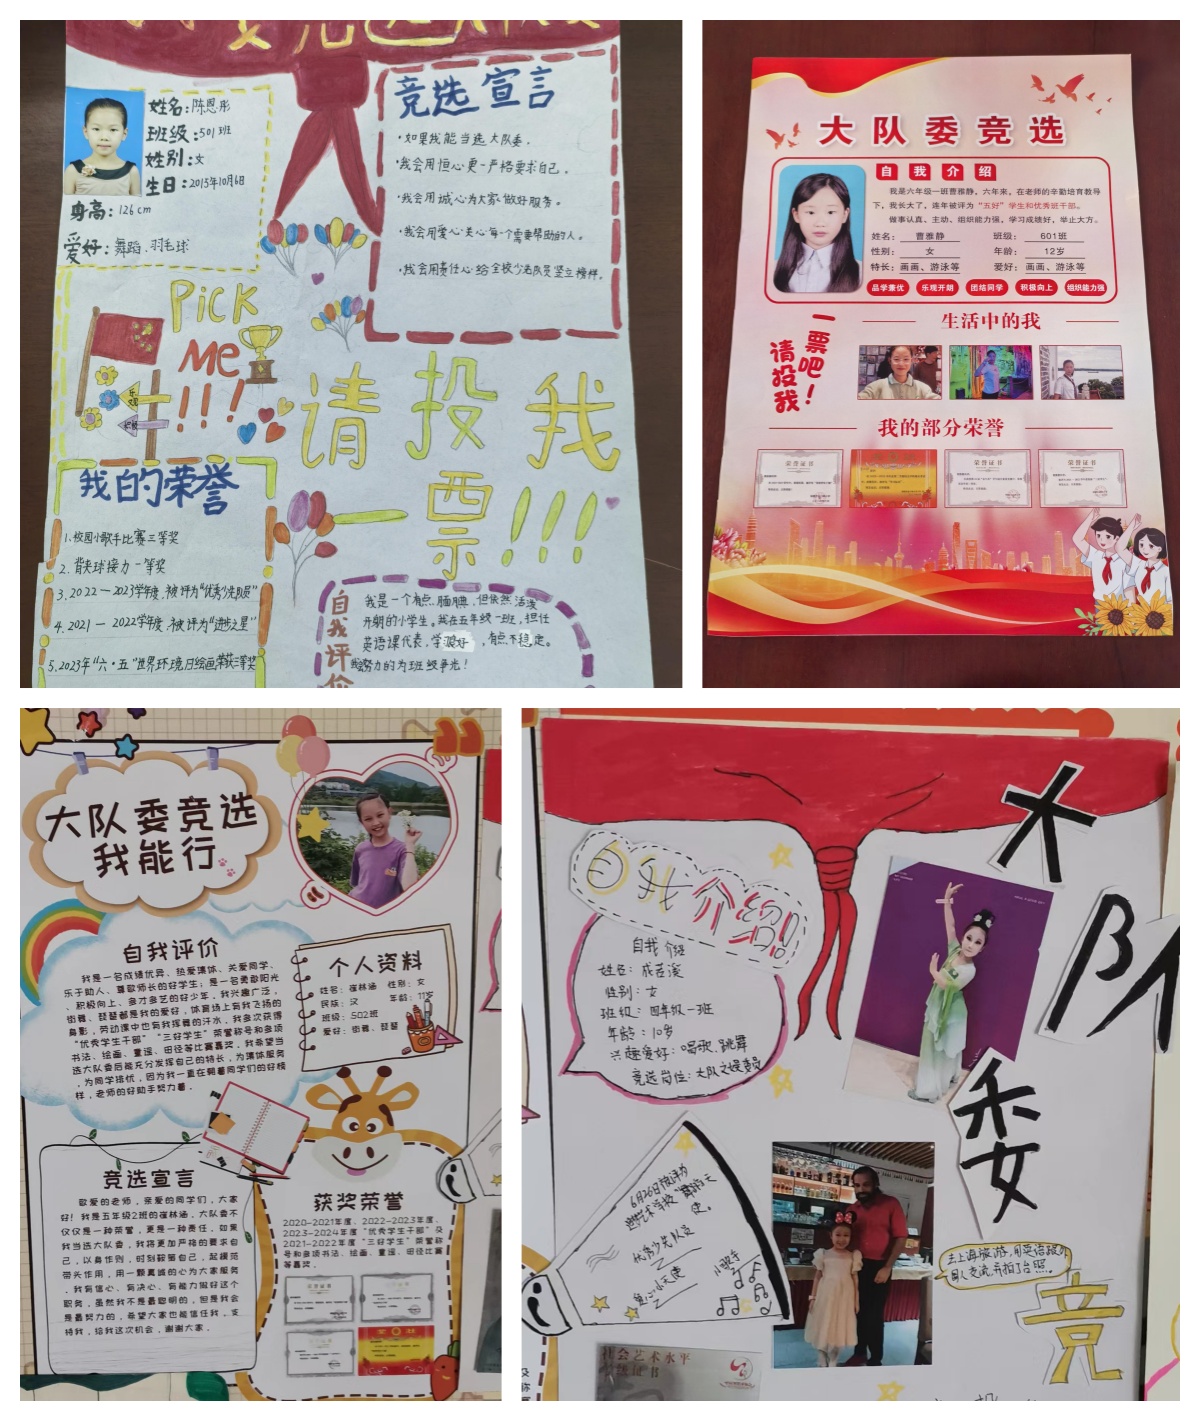 姓名：陈恩彤
班级：501班
姓别：女
生日：2013年10月6日
身高：126cm
爱好：舞蹈、羽毛球
竞选宣言
·如果我能当选大队委，
·我会用恒心更严格要求自己。
·我会用诚心为大家做好服务。
·我会用爱心关心每个需要帮助的人。
·我会用责任心给全校少先队员竖立榜样。
PicK
Me
!!!
乐观
积极
请投我
一票!!!
我的荣誉
1.校园小歌手比赛三等奖
2.背夹球接力一等奖
3.2022—2023学年度,被评为"优秀少先队员"
4.2021—2022学年度,被评为"进步之星"
5.2023年"六·五"世界环境日绘画荣获三等奖
自我评价
我是一个有点腼腆,但依然活泼
开朗的小学生。我在五年级一班,担任
英语课代表,学习很好,有点不稳定。
我会努力的为班级争光!
大队委竞选
自我介绍
我是六年级一班曹雅静，六年来，在老师的辛勤培育教导
下，我长大了，连年被评为“五好”学生和优秀班干部。
做事认真、主动、组织能力强，学习成绩好，举止大方。
姓名： 曹雅静 班级： 601班
性别： 女 年龄： 12岁
特长：画画、游泳等 爱好：画画、游泳等
品学兼优 乐观开朗 团结同学 积极向上 组织能力强
生活中的我
一票吧！
请投我
我的部分荣誉
荣誉证书
荣誉证书
荣誉证书
大队委竞选
我能行
自我评价
我是一名成绩优异、热爱集体、关爱同学、
乐于助人、尊敬师长的好学生；是一名勇敢阳光
、积极向上、多才多艺的好少年，我兴趣广泛，
街舞、琵琶都是我的爱好，体育场上有我飞扬的
身影，劳动课中也有我挥舞的汗水，我多次获得
“优秀学生干部”“三好学生”荣誉称号和多项
书法、绘画、童谣、田径等比赛嘉奖，我希望当
选大队委后能充分发挥自己的特长，为集体服务
，为同学搭忧，因为我一直在朝着同学们的好榜
样，老师的好助手努力着。
个人资料
姓名：崔林涵 性别：女
民族：汉 年龄：11岁
班级：502班
爱好：街舞、琵琶
竞选宣言
敬爱的老师，亲爱的同学们，大家
好！我是五年级2班的崔林涵，大队委不
仅仅是一种荣誉，更是一种责任，如果
我当选大队委，我将更加严格的要求自
己，以身作则，时刻鞭策自己，起模范
带头作用，用一颗真诚的心为大家服务
，我有信心、有决心、有能力做好这个
职务，虽然我不是最聪明的，但是我会
是最努力的，希望大家也能信任我，支
持我，给我这次机会，谢谢大家。
获奖荣誉
2020-2021年度、2022-2023年度、
2023-2024年度“优秀学生干部”及
2021-2022年度“三好学生”荣誉称
号和多项书法、绘画、童谣、田径比赛
等嘉奖。
自我介绍!
自我介绍
性别：女
班级：四年级一班
年龄：10岁
兴趣爱好：唱歌、跳舞
竞选岗位：大队文娱委员
大队委竞
优秀少先队员
爱心小天使
小歌手
去上海旅游,用英语跟外
国人交流,并拍了合照。
社会艺术水平
考级证书